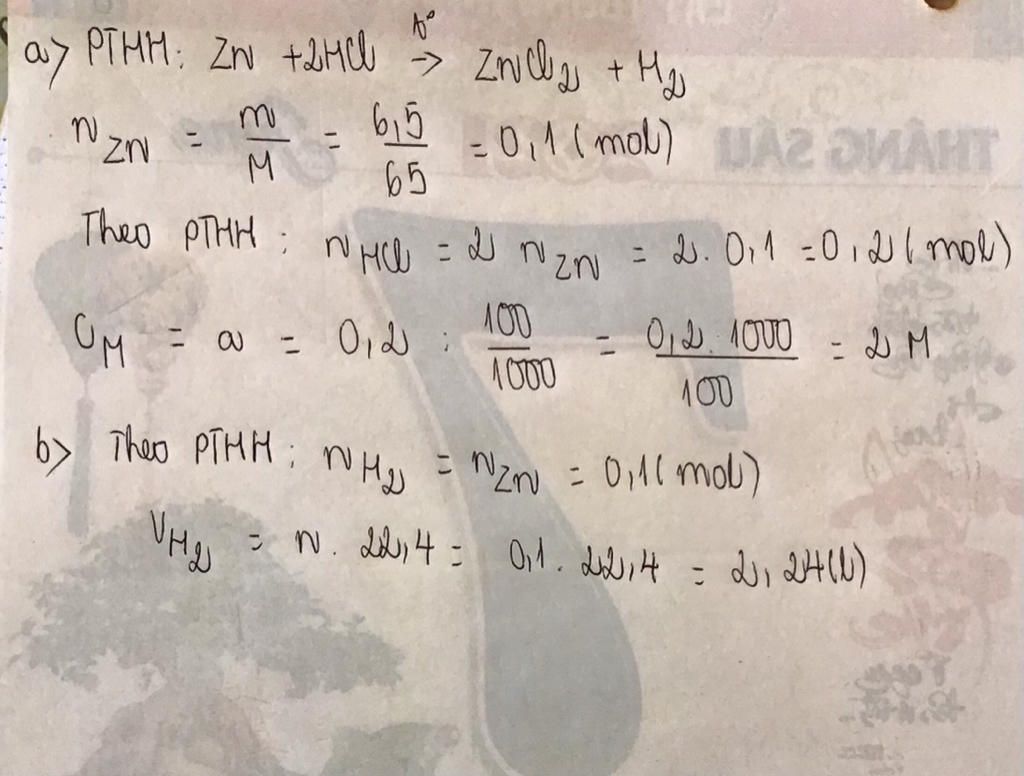 a> PTHH: Zn + 2HCl →(t°) ZnCl₂ + H₂
n Zn = m/M = 6,5/65 = 0,1 (mol)
Theo PTHH: n HCl = 2 n Zn = 2. 0,1 = 0,2 (mol)
C_M = a = 0,2 : 100/1000 = 0,2. 1000/100 = 2 M
b> Theo PTHH: n H₂ = n Zn = 0,1 (mol)
V H₂ = n. 22,4 = 0,1. 22,4 = 2,24 (l)
THÁNG SÁU
7